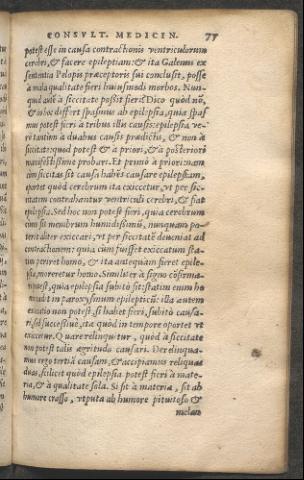 CONSVLT. MEDICIN. 77
potest esse in causa contractionis ventriculorum
cerebri, & facere epilepsiam: & ita Galenus ex
sententia Pelopis præceptoris sui conclusit, posse
à mala qualitate fieri huiusmodi morbos. Nun-
quid autē à siccitate possit fieri? Dico quòd nō,
& in hoc differt spasmus ab epilepsia, quia spas
mus potest fieri à tribus illis causis: epilepsia ve-
rò tantùm à duabus causis prædictis, & non à
siccitate: quod potest & à priori, & à posteriori
manifestissimè probari. Et primò à priori: nam
cùm siccitas sit causa habēs causare epilepsiam,
oportet quòd cerebrum ita exiccetur, vt per sic-
citatem contrahantur ventriculi cerebri, & fiat
epilepsia. Sed hoc non potest fieri, quia cerebrum
cùm sit membrum humidissimū, nunquam po-
terit aliter exiccari, vt per siccitatē deueniat ad
contractionem: quia cùm fuisset exiccatum sta-
tim periret homo, & ita antequàm fieret epile-
psia, moreretur homo. Similiter à signo cōfirma-
ri potest, quia epilepsia subitò fit: statim enim ho
mo cadit in paroxysmum epilepticū: illa autem
exiccatio non potest, si habet fieri, subitò causa-
ri, sed successiuè, ita quòd in tempore oportet vt
exiccetur. Quare relinquitur, quòd à siccitate
non potest talis ægritudo causari. Derelinqua-
mus ergo tertiā causam, & accipiamus reliquas
duas, scilicet quòd epilepsia potest fieri à mate-
ria, & à qualitate sola. Si fit à materia, fit ab
humore crasso, vtputa ab humore pituitoso &
melan